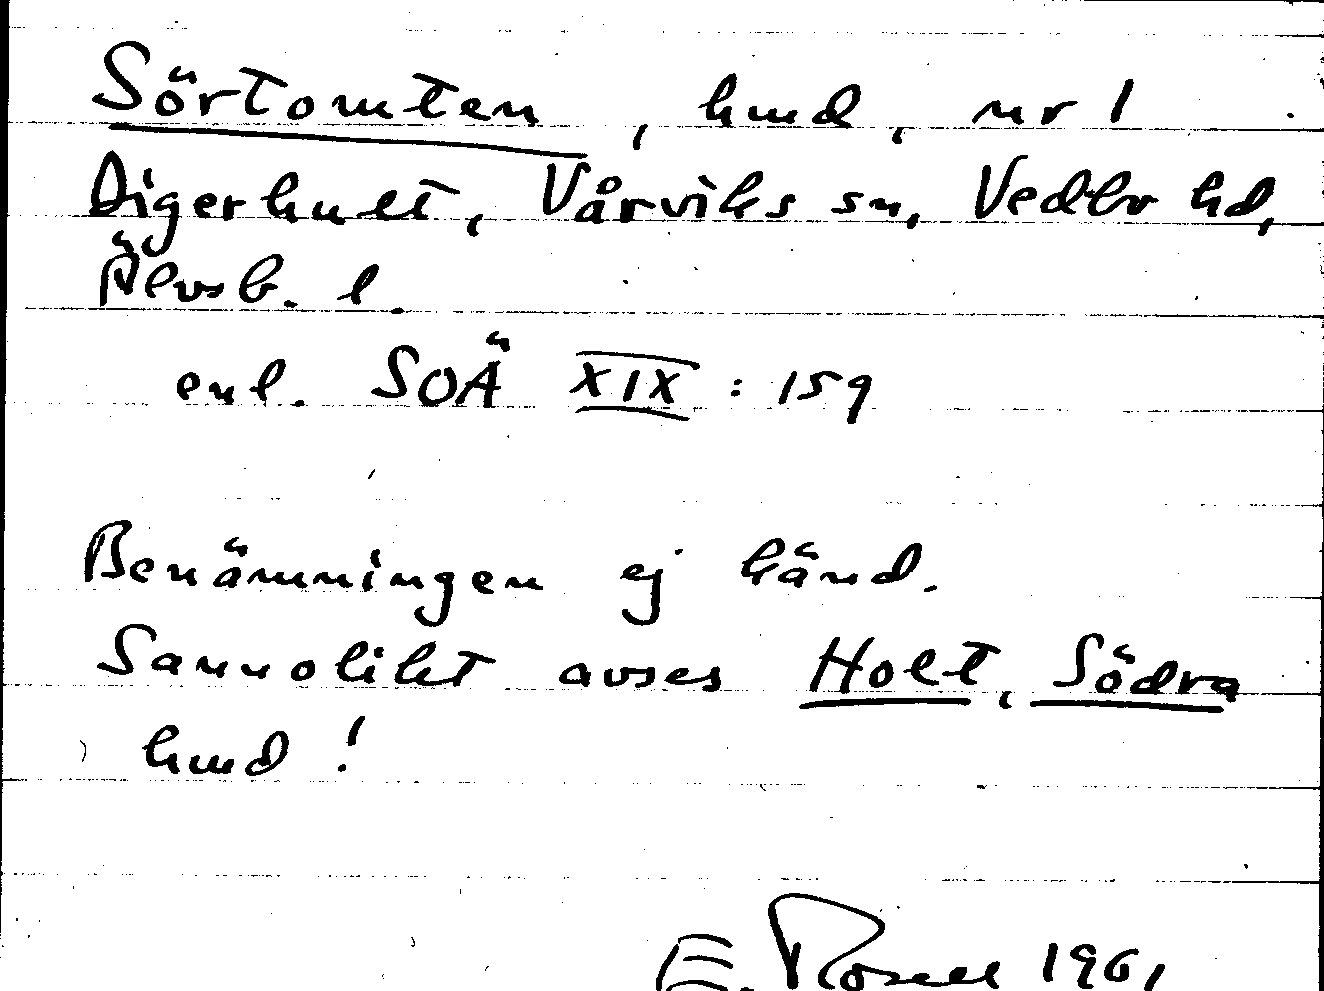 Sörtomten, hmd, nr 1
Digerhult, Vårviks sn, Vedbo hd,
Älvsb. l.
enl. SOÄ XIX : 159
Benämningen ej känd.
Sannolikt avses Holt, Södra
hmd !
E. Rosell 1961